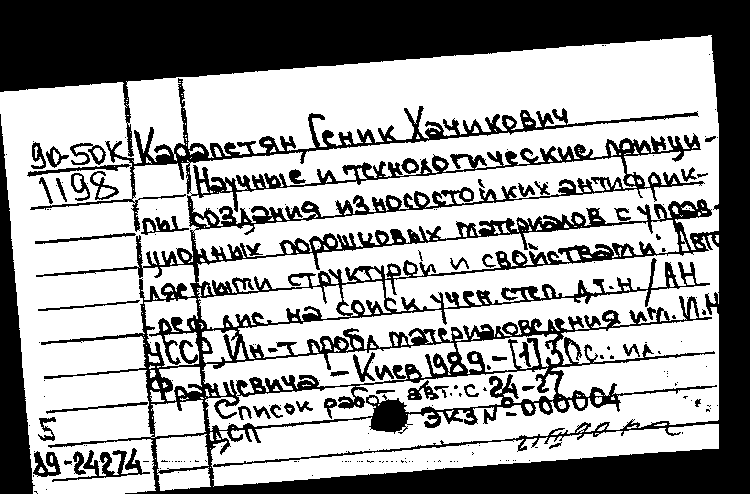 90-50К Карапетян, Геник Хачикович
1198 Научные и технологические принци-
пы создания износостойких антифрик-
ционных порошковых материалов с управ-
ляемыми структурой и свойствами: Авто
-реф. дис. на соиск. учен. степ. д.т.н. / АН
УССР, Ин-т пробл. материаловедения им. И.Н
Францевича. - Киев, 1989. - [1] 30 с.: ил.
Список работ авт.: с. 24-27
ДСП Экз № 000004
89-24274